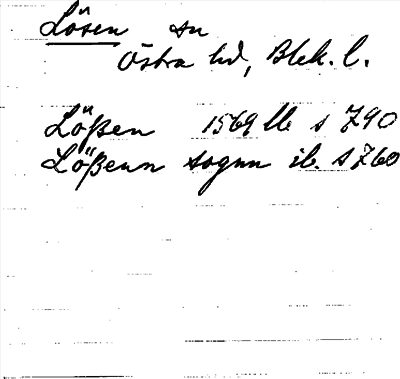 Lösen sn
Östra hd, Blek. l.
Lößen 1569 s 790
Lößenn sognn ib. s 760